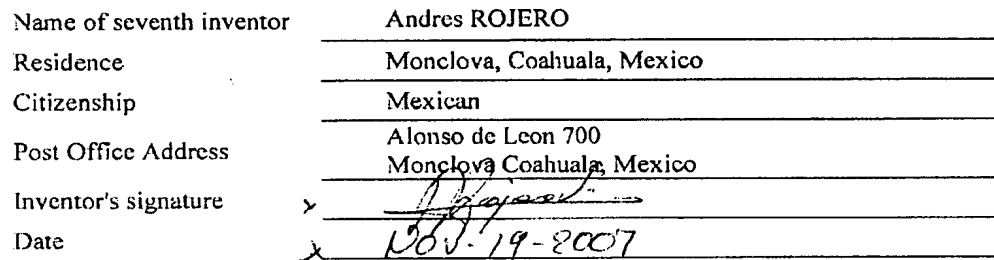 Name of seventh inventor Andres ROJERO
Residence Monclova, Coahuala, Mexico
Citizenship Mexican
Post Office Address Alonso de Leon 700
Monclova Coahuala, Mexico
Inventor's signature x
Date x Nov. 19-2007